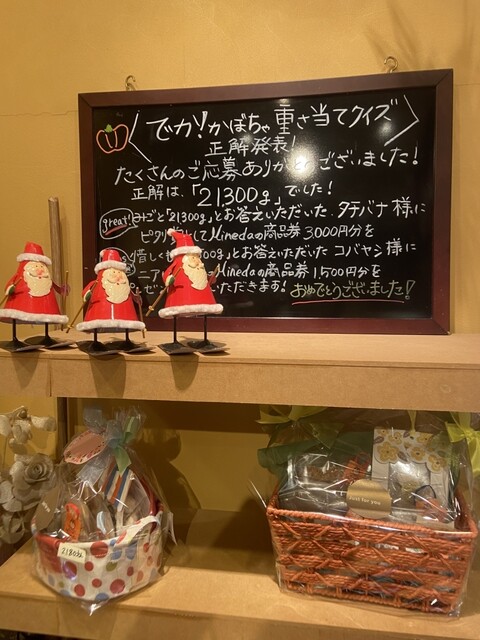 でか!かぼちゃ重さ当てクイズ
正解発表!
たくさんのご応募ありがとうございました!
正解は、「21300g」でした!
great! ゴと「21300g」とお答えいただいた タチバナ様に
ピタリ としてMinedaの商品券3000円分を
惜しく 00g」とお答えいただいた コバヤシ様に
ニア Minedaの商品券1,500円分を
レゼン いただきます! おめでとうございました!
Just for you